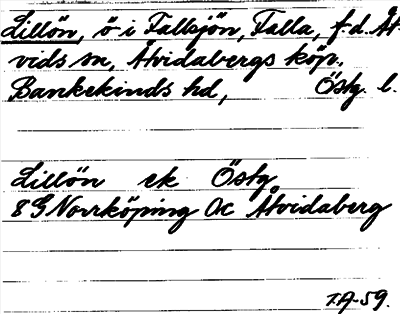 Lillön, ö i Fallsjön, Falla, f.d. Åt-
vids sn, Åtvidabergs köp.
Bankekinds hd, Östg. l.
Lillön ek Östg
8 G Norrköping Oc Åtvidaberg
T.A-59.